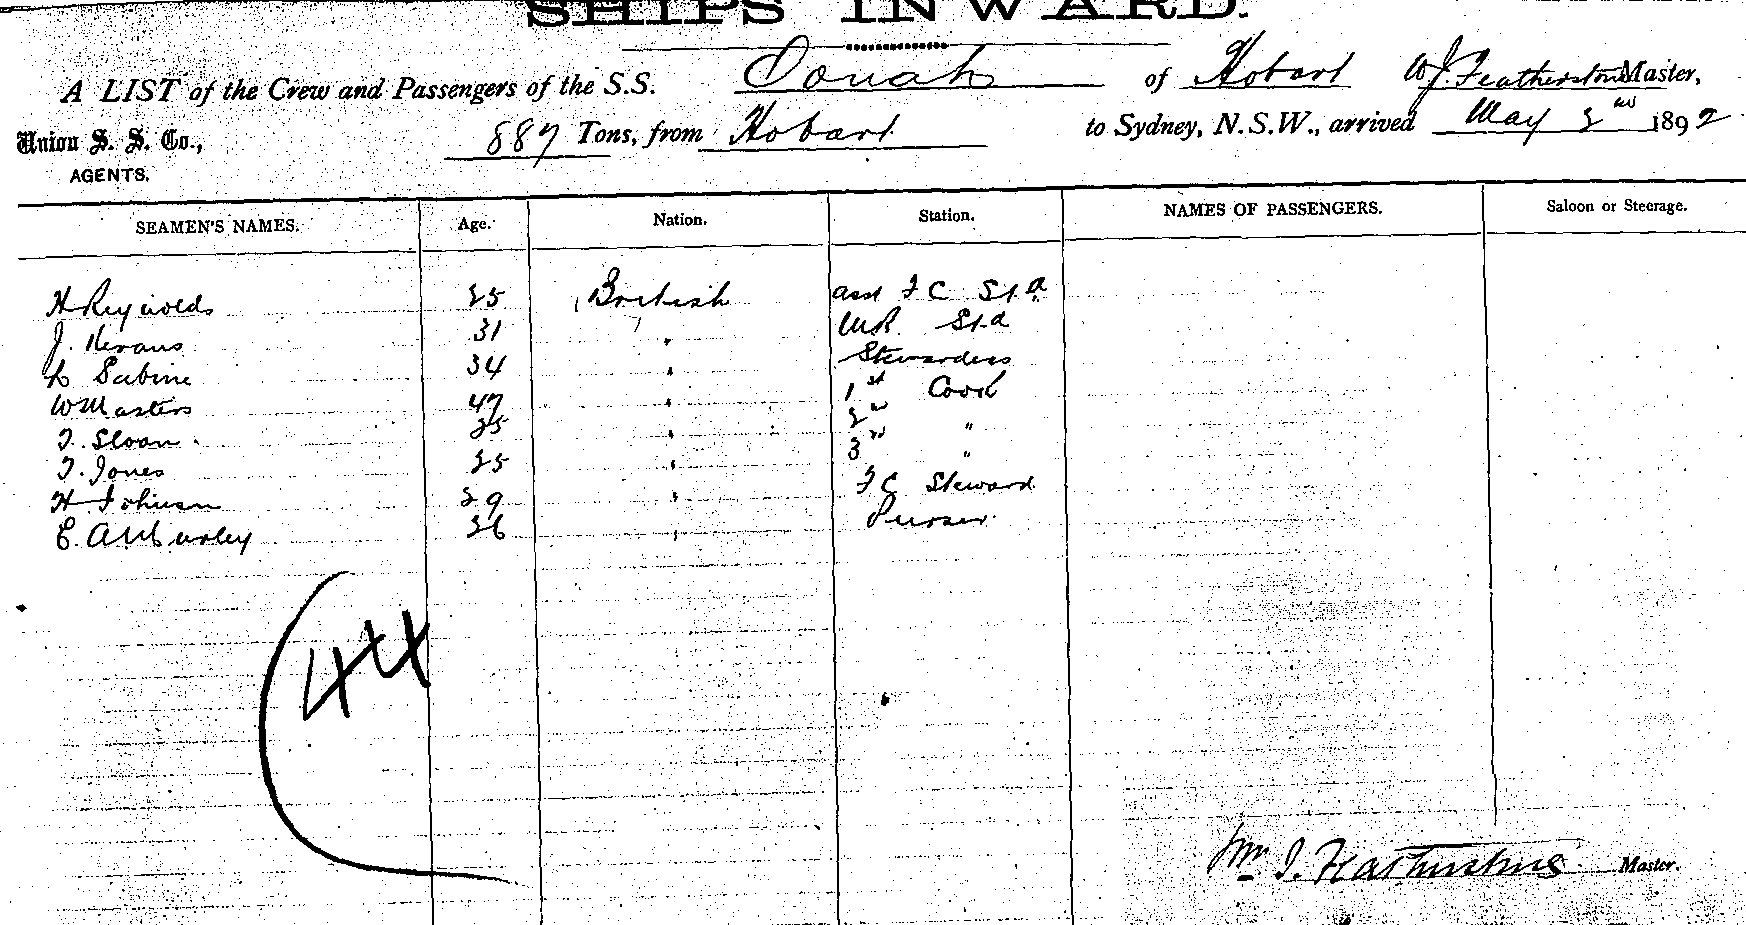 SHIPS INWARD.
A LIST of the Crew and Passengers of the S.S. Oonah of Hobart W J. Featherstone Master,
Union S. S. Co., 887 Tons, from Hobart to Sydney, N.S.W., arrived May 2nd 1892
AGENTS.
SEAMEN'S NAMES. Age. Nation. Station. NAMES OF PASSENGERS. Saloon or Steerage.
H Reynolds 25 British asst F C Std
J. Kerans 31 " M R. Std
L Sabine 34 " Stewardess
W Masters 47 " 1st Cook
T. Sloan 25 " 2nd "
T. Jones 25 " 3rd "
H Johnson 29 " F C Steward
E. A 26 " Purser.
44
Wm J. Featherstone Master.